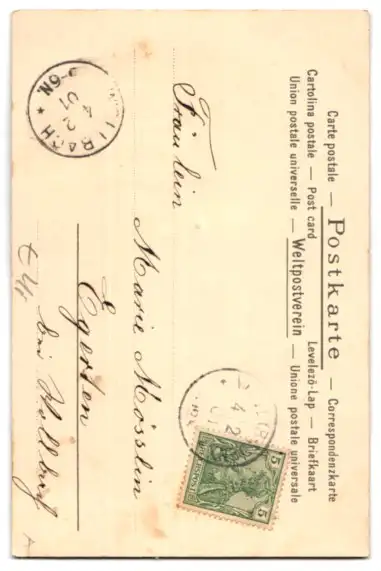 Carte postale — Postkarte — Correspondenzkarte
Cartolina postale — Post card Levelezö-Lap — Briefkaart
Union postale universelle — Weltpostverein — Unione postale universale
Fräulein
Marie Mösslin
Egerten
bei Wollbach
5 5
4 2
2
4
01
6-9N.